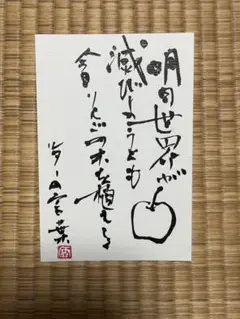 明日世界が
滅びようとも
今日りんごの木を植える
ルターの言葉